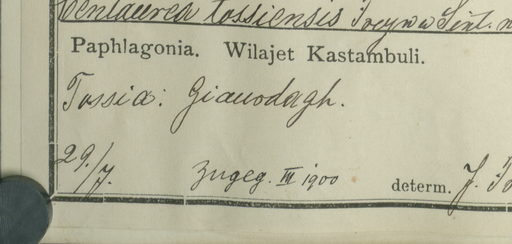 Centaurea tossiensis Freyn & Sint. n
Paphlagonia. Wilajet Kastambuli.
Tossia: Giauodagh.
29./7. Zugeg. III 1900 determ. J.